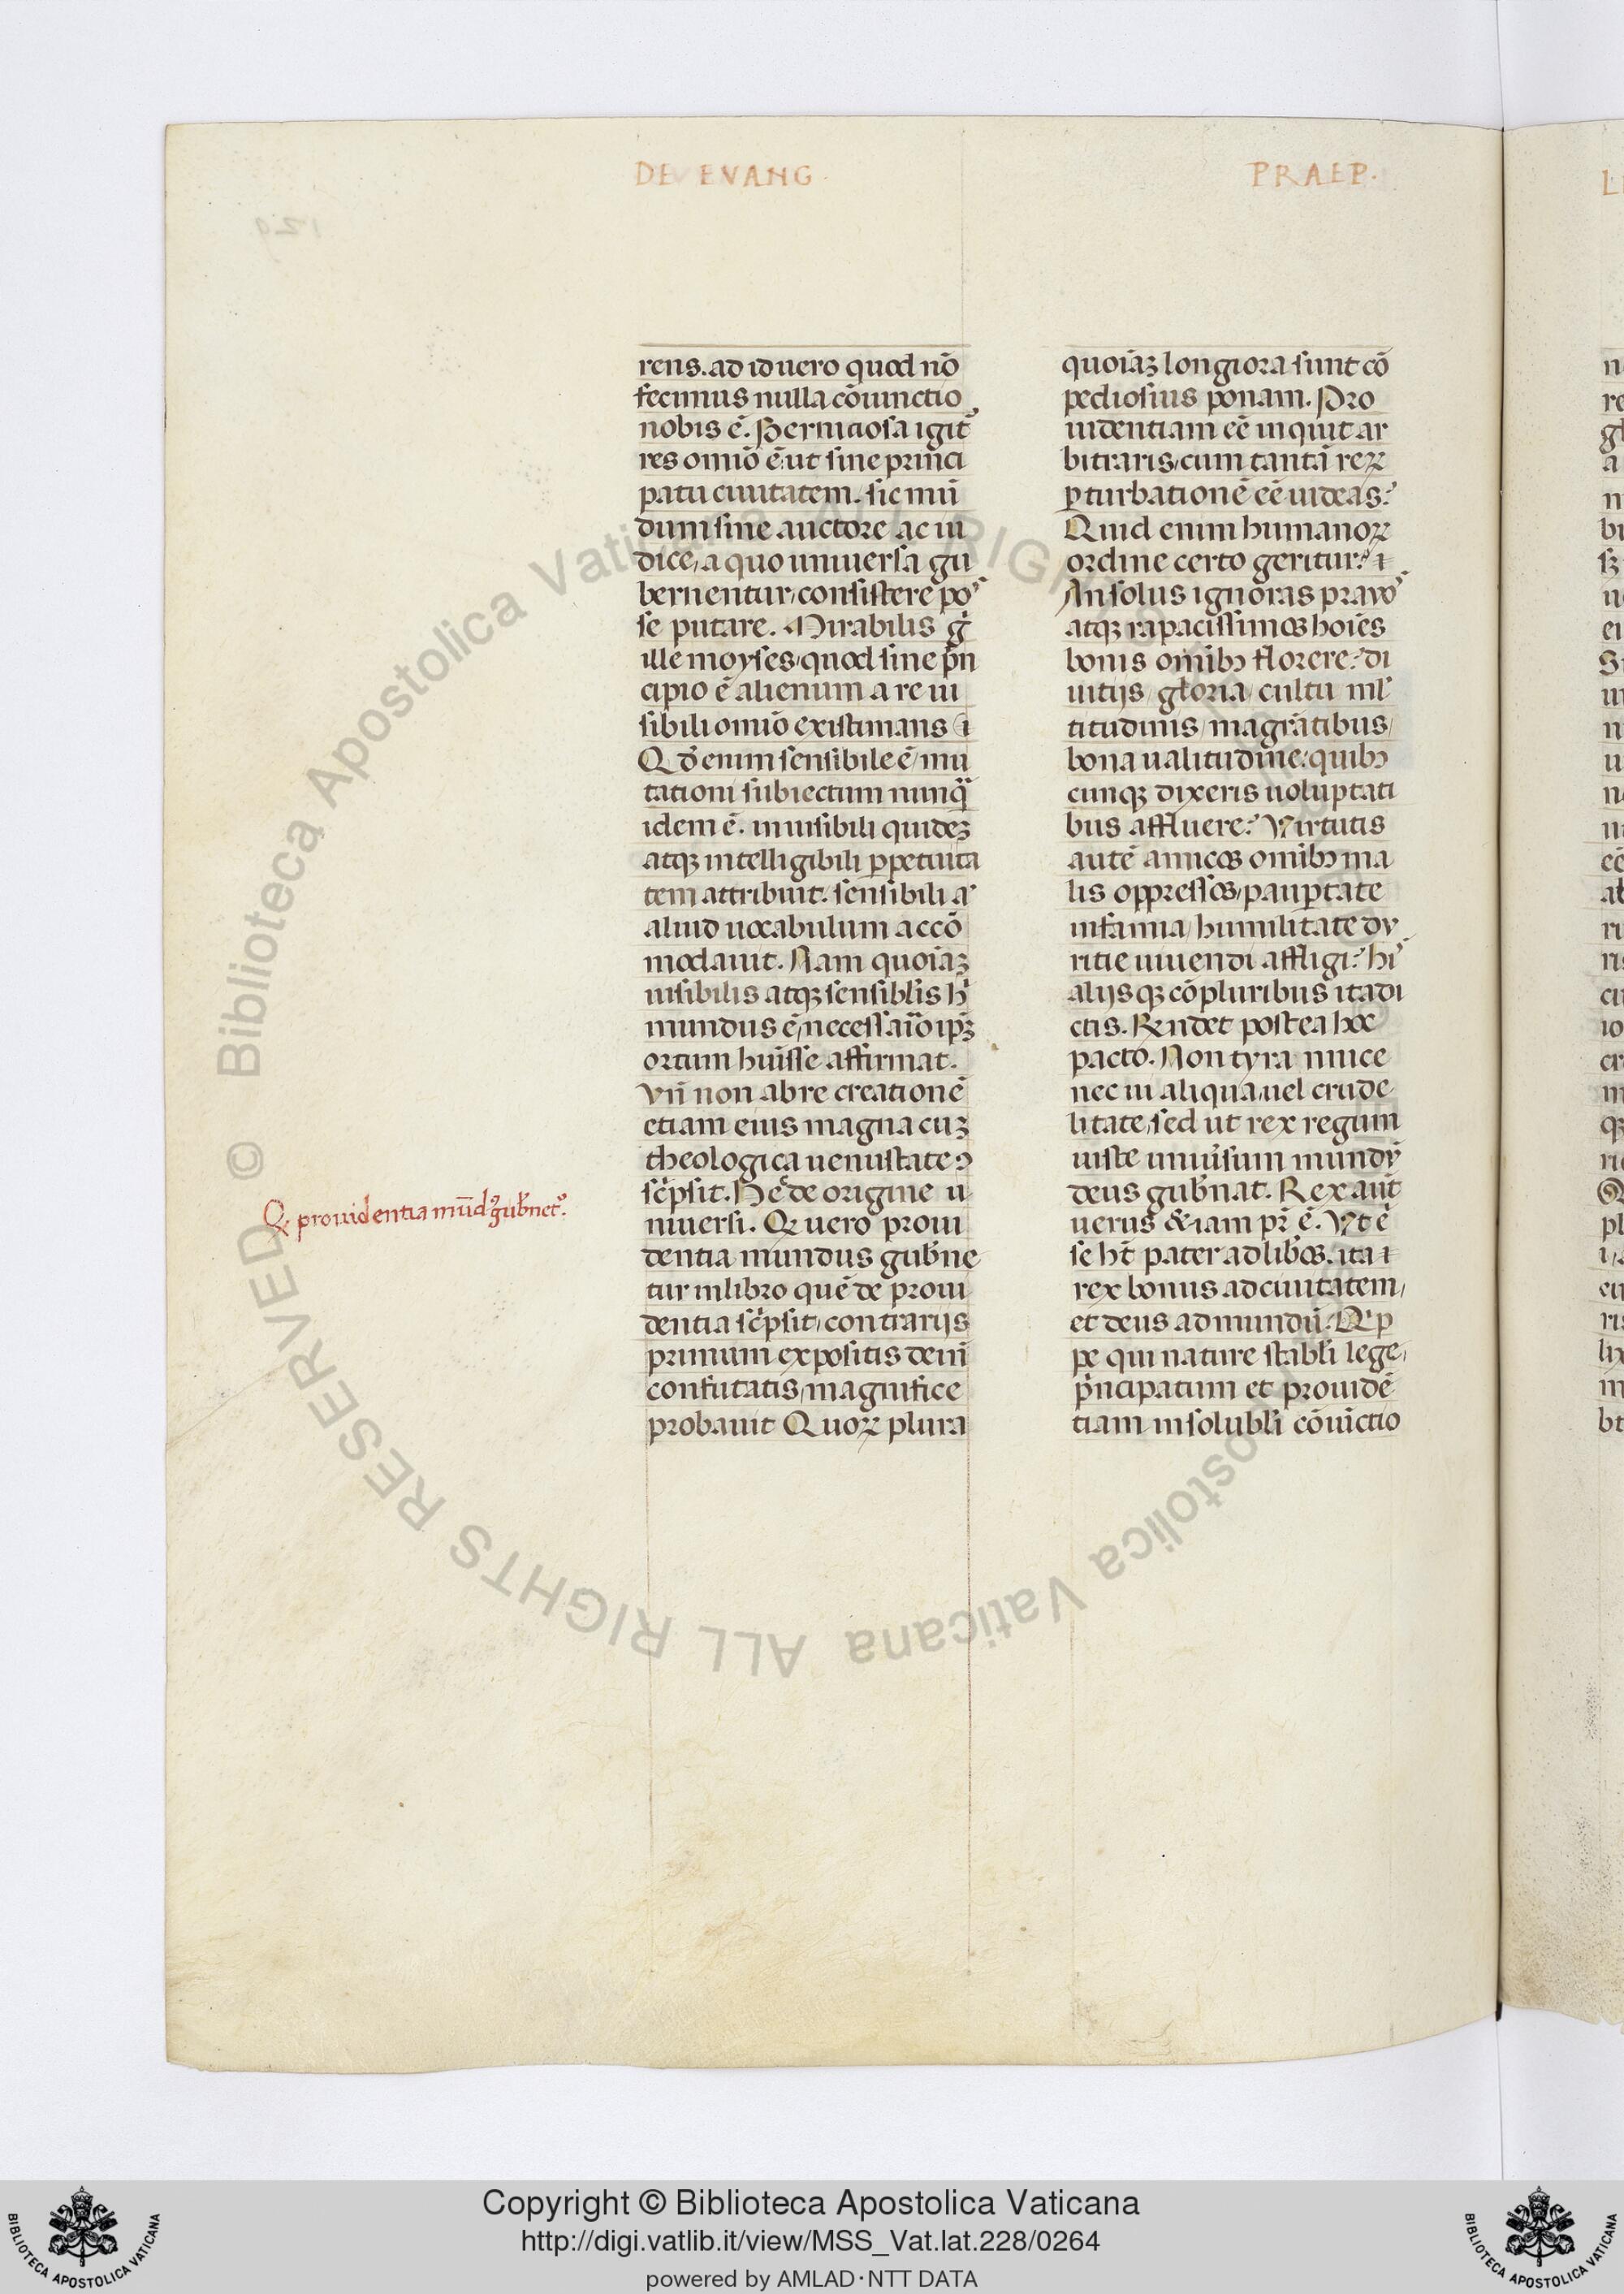 DE EVANG
PRAEP.
rens. ad id uero quod nō
fecimus nulla cōiunctio
nobis ē. Perniciosa igit᷑
res omīo ē ut sine princi
patu ciuitatem. sic mū
dum sine auctore ac iu
dice, a quo uniuersa gu
bernentur, consistere pos
se putare. Mirabilis g̊
ille moyses, quod sine p̄n
cipio ē alienum a re ui
sibili omīo existimans
Qd̄ enim sensibile ē, mu
tationi subiectum nunq̄
idem ē. inuisibili quideꝫ
atqꝫ intelligibili ꝑpetuita
tem attribuit. sensibili a᷑
aliud uocabulum accō
modauit. Nam quoiāꝫ
uisibilis atqꝫ sensibłis h᷑
mundus ē, necessaīo ipꝫ
ortum huisse affirmat.
Vn̄ non ab re creationē
etiam eius magna cuꝫ
theologica uenustate ↄ
sc̄psit. Hec̄ de origine u
niuersi. Qꝫ uero proui
Qꝫ prouidentia mūdꝰ gub̄net᷑.
dentia mundus gub̄ne
tur in libro quē de proui
dentia sc̄psit, contrarijs
primum expositis dein̄
confutatis, magnifice
probauit Quoꝝ plura
quoiāꝫ longiora sunt cō
pediosius ponam. Pro
uidentiam eē inquit ar
bitraris, cum tantā reꝝ
ꝑturbationē eē uideas?
Quid enim humanoꝝ
ordine certo geritur?
An solus ignoras prauos
atqꝫ rapacissimos hoīes
bonis omībꝫ florere? di
uitijs, gloria, cultu ml᷑
titudinis, magrātibus,
bona ualitudine: quibꝫ
cunqꝫ dixeris uoluptati
bus affluere? Virtutis
autē amicos omībꝫ ma
lis oppressos, pauꝑtate
infamia, humilitate du
ritie uiuendi affligi? hi᷑
alijsqꝫ cōpluribus ita di
ctis. Rn̄det postea hoc
pacto. Non tyrannice
nec ui aliqua, uel crude
litate, sed ut rex regum
iuste uniūsum mundū
deus gub̄nat. Rex aut̄
uerus & iam pr̄ ē. Vt ē
se ht̄ pater ad lib̄os. ita ⁊
rex bonus ad ciuitatem,
et deus ad mundū. Qip
pe qui nature stabłi lege,
p̄ncipatum et prouidē
tiam insolubłi cōiūctio
Copyright © Biblioteca Apostolica Vaticana
http://digi.vatlib.it/view/MSS_Vat.lat.228/0264
powered by AMLAD·NTT DATA
BIBLIOTECA APOSTOLICA VATICANA
BIBLIOTECA APOSTOLICA VATICANA
© Biblioteca Apostolica Vaticana ALL RIGHTS RESERVED